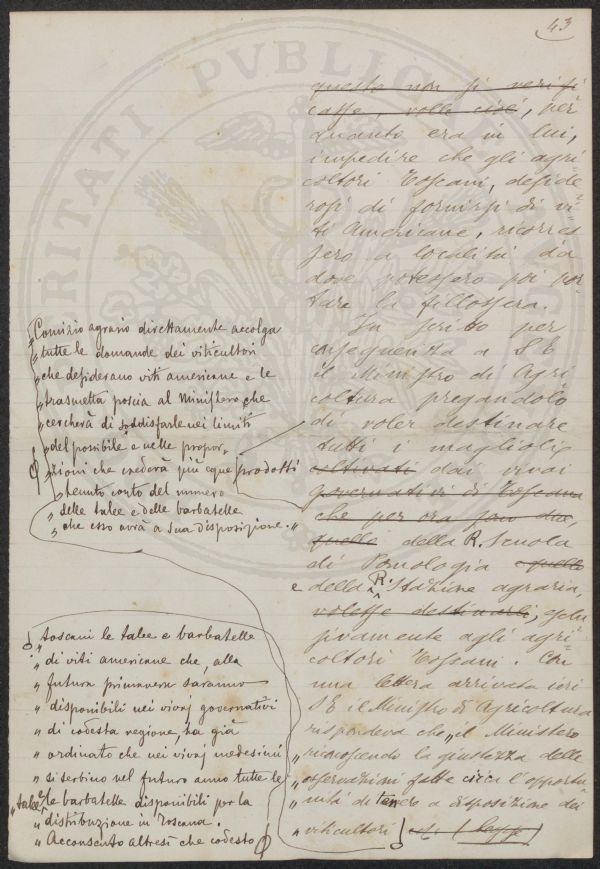 43
questo non si verifi
casse, volle cioè, per
quanto era in lui,
impedire che gli agri
coltori Toscani, deside
rosi di fornirsi di vi-
ti Americane, ricorres
sero a località da
dove potessero poi por
tare la fillossera.
In scritto per
conseguenza a S E
il Ministro di Agri
coltura pregandolo
di voler destinare
tutti i maglioli
coltivati dai vivai
prodotti
governativi di Toscana
che per ora sono due,
quello della R. Scuola
di Pomologia e quello
e della R. Stazione agraria,
volesse destinarli, esclu
sivamente agli agri
coltori Toscani. Con
una lettera arrivata ieri
S E il Ministro di Agricoltura
rispondeva che „il Ministero
„riconoscendo la giustezza delle
„osservazioni fatte circa l'opportu
„nità di tenere a disposizione dei
„viticultori
„toscani le talee e barbatelle
„di viti americane che, alla
„futura primavera saranno
„disponibili nei vivaj governativi
„di codesta regione, ha già
„ordinato che nei vivaj medesimi
„si serbino nel futuro anno tutte le
„talee e le barbatelle disponibili per la
„distribuzione in Toscana.
„Acconsento altresì che codesto
„Comizio agrario direttamente accolga
„tutte le domande dei viticultori
„che desiderano viti americane e le
„trasmetta poscia al Ministero che
„cercherà di soddisfarle nei limiti
„del possibile e nelle propor„
„zioni che crederà più eque
„tenuto conto del numero
„delle talee e delle barbatelle
„che esso avrà a sua disposizione.„